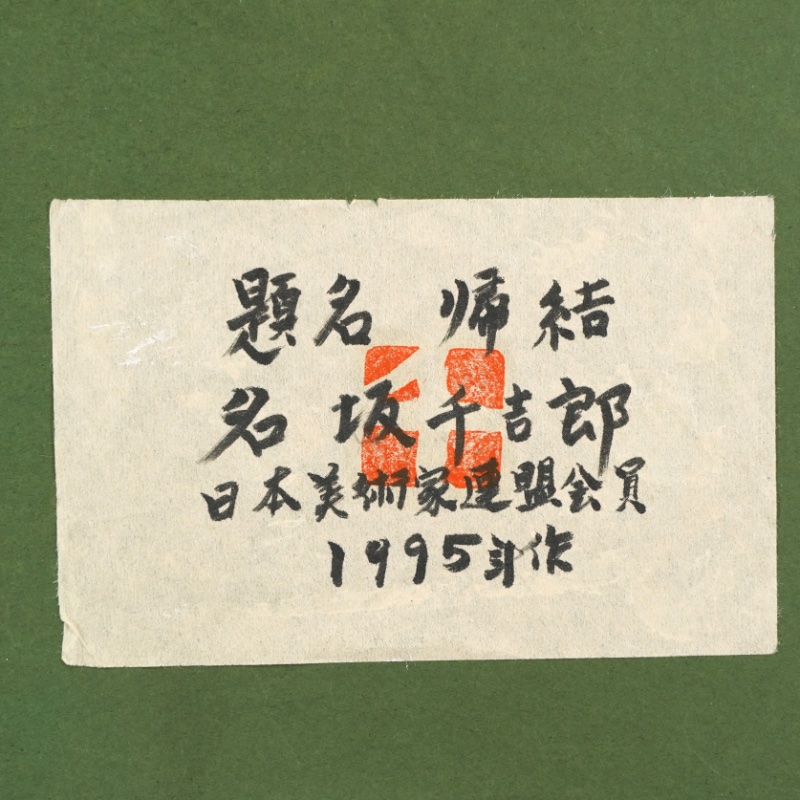 題名 帰結
名坂千吉郎
日本美術家連盟会員
1995年作